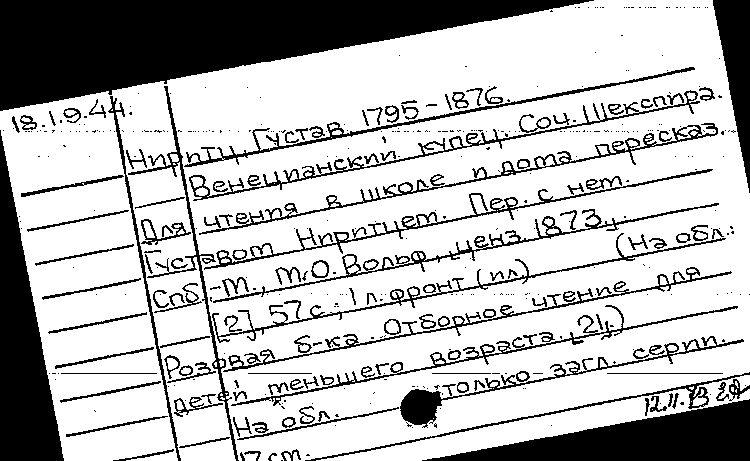 18.1.9.44.
Ниритц, Густав, 1795-1876.
Венецианский купец. Соч. Шекспира.
Для чтения в школе и дома пересказ.
Густавом Ниритцем. Пер. с нем.
Спб.-М., М.О. Вольф, ценз. 1873.
[2], 57 с.; 1 л. фронт (ил) (На обл.:
Розовая б-ка. Отборное чтение для
детей меньшего возраста. [21].)
На обл. только загл. серии.
17 см.